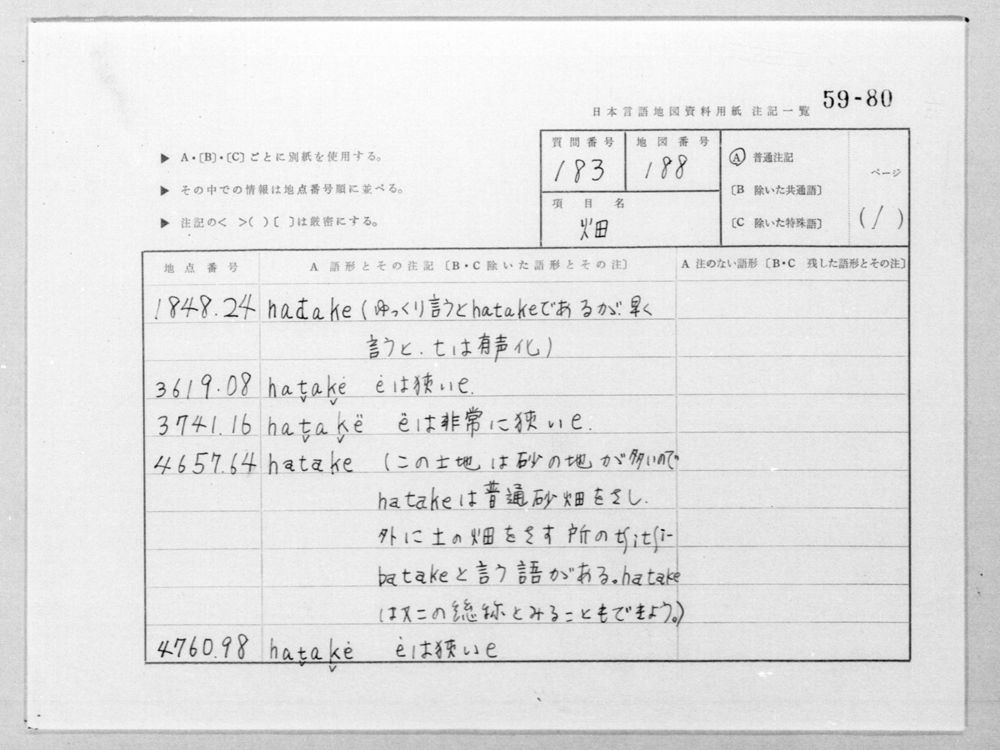 59-80
日本言語地図資料用紙 注記一覧
▶ A・〔B〕・〔C〕ごとに別紙を使用する。
▶ その中での情報は地点番号順に並べる。
▶ 注記の< >( )〔 〕は厳密にする。
質問番号 地図番号
183 188
項目名
畑
Ⓐ 普通注記
〔B 除いた共通語〕
〔C 除いた特殊語〕
ページ
(1)
地点番号 A 語形とその注記〔B・C 除いた語形とその注〕 A 注のない語形〔B・C 残した語形とその注〕
1848.24 hadake (ゆっくり言うとhatakeであるが、早く
言うと、tは有声化)
3619.08 hat̬ak̬ė ėは狭いe.
3741.16 hat̬ak̬ë ëは非常に狭いe.
4657.64 hatake (この土地は砂の地が多いので
hatakeは普通砂畑をさし、
外に土の畑をさす所のtʃitʃi-
batakeと言う語がある。hatake
は又この総称とみることもできよう。)
4760.98 hat̬ak̬ė ėは狭いe